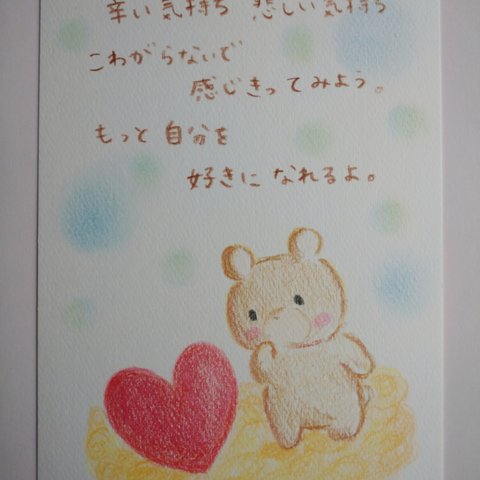 辛い気持ち 悲しい気持ち
こわがらないで
感じきってみよう。
もっと自分を
好きになれるよ。